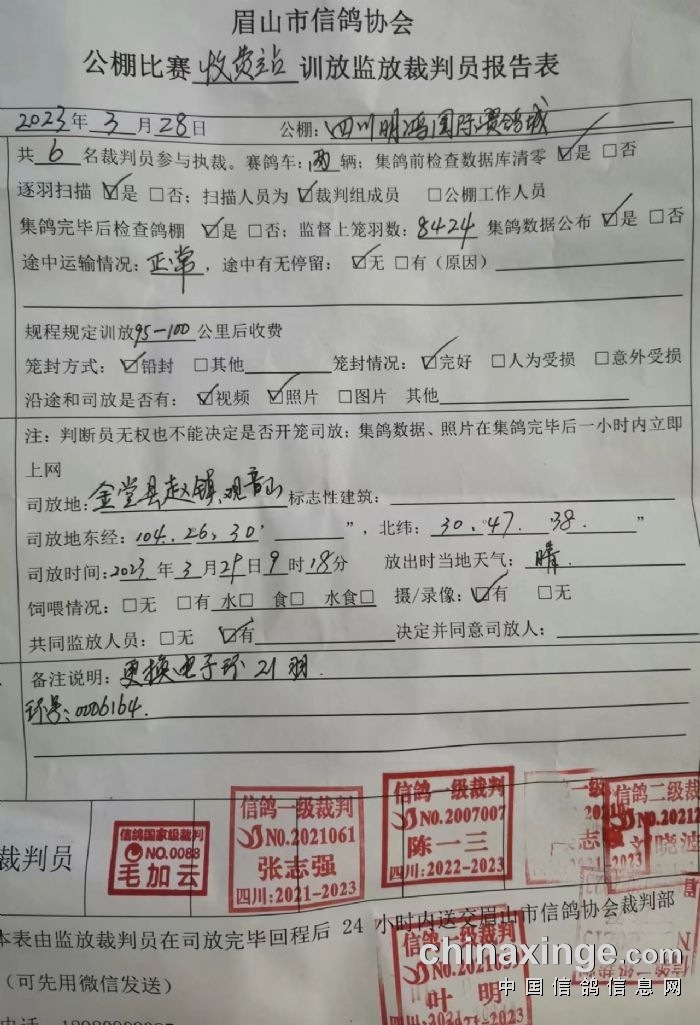 眉山市信鸽协会
公棚比赛收费站训放监放裁判员报告表
2023年3月28日 公棚:四川明鸿国际赛鸽城
共6名裁判员参与执裁。赛鸽车:两辆;集鸽前检查数据库清零 ☑是 □否
逐羽扫描 ☑是 □否;扫描人员为 ☑裁判组成员 □公棚工作人员
集鸽完毕后检查鸽棚 ☑是 □否;监督上笼羽数:8424 集鸽数据公布 ☑是 □否
途中运输情况:正常,途中有无停留:☑无 □有(原因)
规程规定训放95-100公里后收费
笼封方式:☑铅封 □其他 笼封情况:☑完好 □人为受损 □意外受损
沿途和司放是否有:☑视频 ☑照片 □图片 其他
注:判断员无权也不能决定是否开笼司放;集鸽数据、照片在集鸽完毕后一小时内立即
上网
司放地:金堂县赵镇观音山 标志性建筑:
司放地东经:104.26.30' ",北纬:30.47.38."
司放时间:2023年3月29日9时18分 放出时当地天气:晴.
饲喂情况:□无 □有 水□ 食□ 水食□ 摄/录像:☑有 □无
共同监放人员:□无 ☑有 决定并同意司放人:
备注说明:更换电子环21羽.
环号:0006164.
裁判员
信鸽国家级裁判
NO.0088
毛加云
信鸽一级裁判
NO.2021061
张志强
四川:2021-2023
信鸽一级裁判
NO.2007007
陈一三
四川:2022-2023
信鸽二级裁判
刘晓波
本表由监放裁判员在司放完毕回程后 24 小时内送交眉山市信鸽协会裁判部
(可先用微信发送)
叶明
chinaxinge.com
中国信鸽信息网